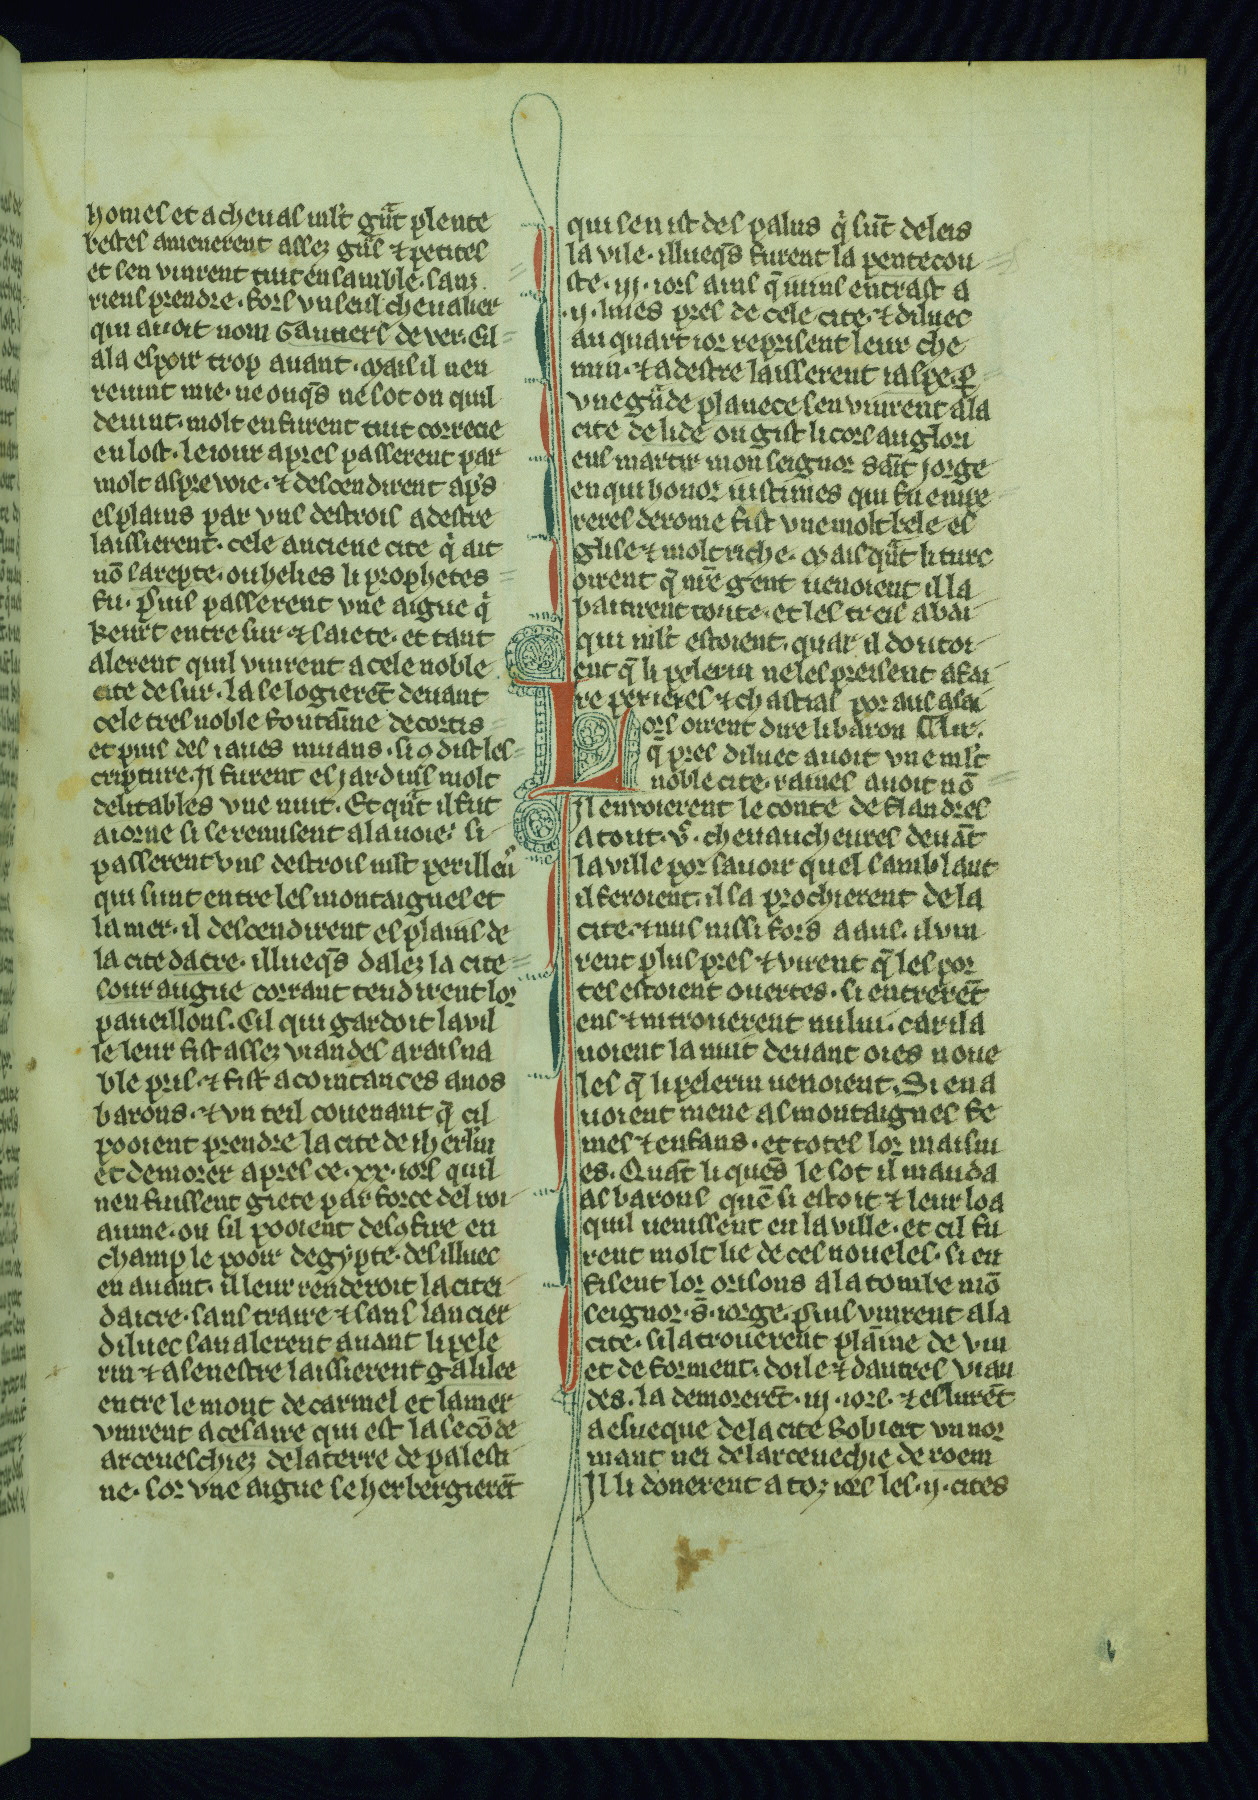 homes et a cheuas mlt gnt plente
bestes amenerent assez gns ⁊ petites
et sen vinrent tuit ensamble. sanz
riens prendre. fors vn seul cheualier
qui auoit nom Gautiers de ver. Cil
ala espoir trop auant. mais il nen
reuint mie. ne onqs ne sot on quil
deuint. molt en furent tuit correcie
en lost. le iour apres passerent par
molt aspre voie. ⁊ descendirent aps
es plains par vns destrois a destre
laissierent. cele anciene cite q̇ ait
nō sarepte. ou helies li prophetes
fu. puis passerent vne aigue q̇
keurt entre sur ⁊ saiete. et tant
alerent quil vinrent a cele noble
cite de sur. la se logierēt deuant
cele tres noble fontaīne decortis
et puis des iaues viuans. si 9 dist les
cripture. Il furent es jardins molt
delitables vne nuit. Et qnt il fut
aiorne si se remisent a la uoie. si
passerent vns destrois mlt perilleus
qui sunt entre les montaignes et
la mer. il descendirent es plains de
la cite dacre. illueqs dalez la cite
sour augue corrant tendirent lor
paueillons. Cil qui gardoit la vil
le leur fist assez viandes a raisna
ble pris. ⁊ fist acointances a nos
barons. ⁊ vn teil couenant q̄ cil
pooient prendre la cite de iherlm
et demorer apres ce .xx. iors quil
nen fuissent giete par force del roi
aume. ou sil pooient des9fire en
champ le pooir degypte. des illuec
en auant. il leur renderoit la citei
daicre. sans traire ⁊ sans lancier
diluec san alerent auant li pele
rin ⁊ a senestre laissierent galilee
entre le mont de carmel et la mer
vinrent a cesaire qui est la secōde
arceueschiez de la terre de palesti
ne. sor vne aigue se herbergierēt
qui sen ist des palus q̇ sūt deleis
la vile. illueqs furent la pentecou
ste .iij. iors ains q̄ nuns entrast a
.ij. liues pres de cele cite. ⁊ diluec
au quart ior reprisent leur che
min. ⁊ a destre laisserent iaspe. p̱
vne gnde planece sen vinrent a la
cite de lide ou gist li cors au glori
eus martir mon seignor saīt jorge
en qui honor iustimes qui fu empe
reres de rome fist vne molt bele es
glise ⁊ molt riche. mais qnt li turc
oirent q̄ nre gent uenoient il la
batirent toute. et les treis a bai
qui mlt estoient. quar il doutoi
ent q̄ li pelerin ne les preisent a fai
re perieres ⁊ chastias por aus asai
Lors oirent dire li baron llir.
q̄ pres diluec auoit vne mlt
noble cite. rames auoit nō
Il enuoierent le conte de flandres
a tout .vc. cheuaucheures deuāt
la ville por sauoir quel samblant
il feroient. il sa prochierent de la
cite. ⁊ nus nissi fors a aus. il vin
rent plus pres ⁊ virent q̄ les por
tes estoient ouertes. si entrerēt
ens ⁊ ni trouerent nului. car il a
uoient la nuit deuant oies noue
les q̄ li pelerin uenoient. Si en a
uoient mene as montaignes fe
mes ⁊ enfans. et totes lor maisni
es. Quāt li quens le sot il manda
as barons quē si estoit ⁊ leur loa
quil uenissent en la ville. et cil fu
rent molt lie de ces noueles. si en
fisent lor orisons a la tombe mō
seignor .s. iorge. puis vinrent a la
cite. si la trouerent plaīne de vin
et de forment. doile ⁊ dautres vian
des. la demorerēt .iij. iors. ⁊ eslurēt
a esueque de la cite Robiert vn nor
mant nei de larceuechie de roem
Il li donerent a toz iors les .ij. cites